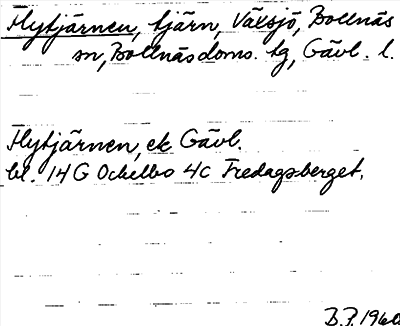 Flytjärnen, tjärn, Växsjö, Bollnäs
sn, Bollnäs doms. tg, Gävl. l.
Flytjärnen, ek Gävl.
bl. 14 G Ockelbo 4c Fredagsberget.